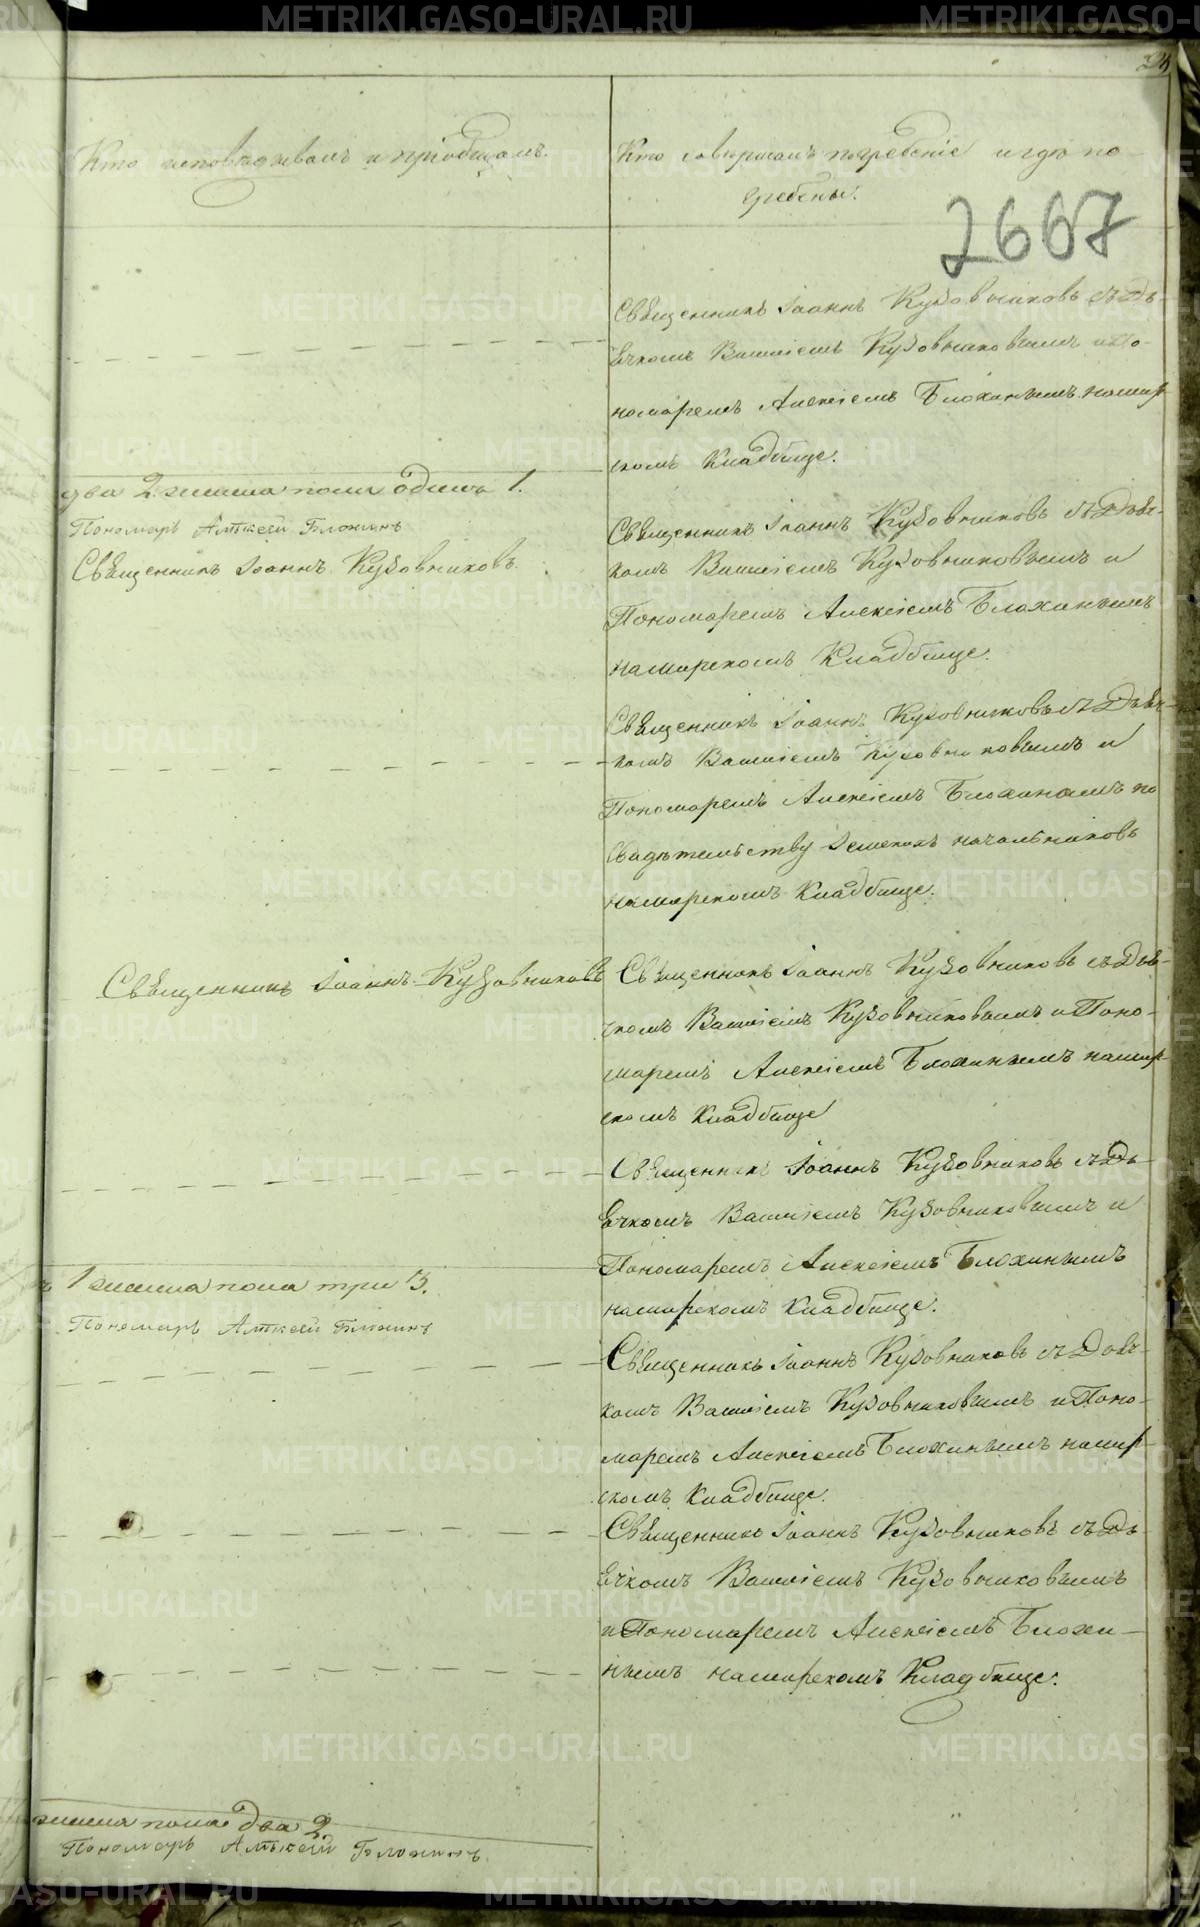 24
Кто исповѣдывалъ и пріобщалъ.
Кто совершалъ погребеніе и гдѣ по-
гребены.
2667
Священникъ Іоаннъ Кузовниковъ съ Дь-
ячкомъ Василіемъ Кузовниковымъ и По-
номаремъ Алексіемъ Блохинымъ на мир-
скомъ Кладбище.
два 2. женска пола одинъ 1.
Пономарь Алѣксѣй Блохинъ
Священникъ Іоаннъ Кузовниковъ.
Священникъ Іоаннъ Кузовниковъ съ Дьяч-
комъ Василіемъ Кузовниковымъ и
Пономаремъ Алексіемъ Блохинымъ
на мирскомъ Кладбище.
Священникъ Іоаннъ Кузовниковъ съ Дьяч-
комъ Василіемъ Кузовниковымъ и
Пономаремъ Алексіемъ Блохинымъ по
свидѣтельству Земскихъ начальниковъ
на мирскомъ Кладбище.
Священникъ Іоаннъ Кузовниковъ
Священникъ Іоаннъ Кузовниковъ съ Дья-
чкомъ Василіемъ Кузовниковымъ и Поно-
маремъ Алексіемъ Блохинымъ на мир-
скомъ Кладбище
Священникъ Іоаннъ Кузовниковъ съ Дь-
ячкомъ Василіемъ Кузовниковымъ и
Пономаремъ Алексіемъ Блохинымъ
на мирскомъ Кладбище.
ъ 1 женска пола три 3.
Пономарь Алѣксѣй Блохинъ
Священникъ Іоаннъ Кузовниковъ съ Дьяч-
комъ Василіемъ Кузовниковымъ и Поно-
маремъ Алексіемъ Блохинымъ на мир-
скомъ Кладбище.
Священникъ Іоаннъ Кузовниковъ съ Дь-
ячкомъ Василіемъ Кузовниковымъ
и Пономаремъ Алексіемъ Блохи-
нымъ на мирскомъ Кладбище.
женска пола два 2
Пономарь Алѣксѣй Блохинъ.
METRIKI.GASO-URAL.RU